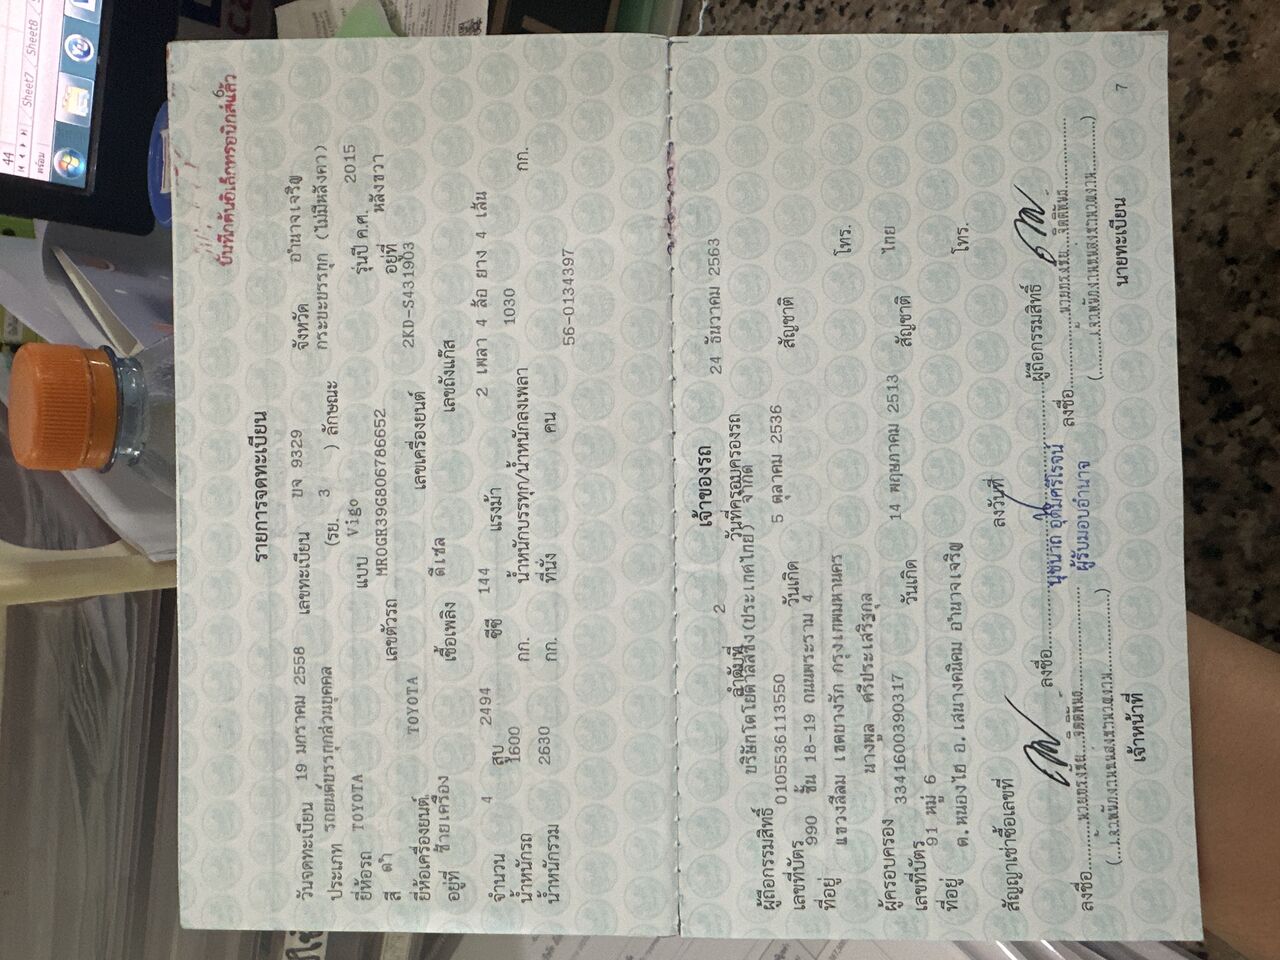 บันทึกต้นอิเล็กทรอนิกส์แล้ว
6
รายการจดทะเบียน
วันจดทะเบียน 19 มกราคม 2558 เลขทะเบียน บจ 9329 จังหวัด อำนาจเจริญ
ประเภท รถยนต์บรรทุกส่วนบุคคล (รย. 3 ) ลักษณะ กระบะบรรทุก (ไม่มีหลังคา)
ยี่ห้อรถ TOYOTA แบบ Vigo รุ่นปี ค.ศ. 2015
สี ดำ เลขตัวรถ MR0GR39G806786652 อยู่ที่ หลังขวา
ยี่ห้อเครื่องยนต์ TOYOTA เลขเครื่องยนต์ 2KD-S431903
อยู่ที่ ซ้ายเครื่อง เชื้อเพลิง ดีเซล เลขถังแก๊ส
จำนวน 4 สูบ 2494 ซีซี 144 แรงม้า 2 เพลา 4 ล้อ ยาง 4 เส้น
น้ำหนักรถ 1600 กก. น้ำหนักบรรทุก/น้ำหนักลงเพลา 1030 กก.
น้ำหนักรวม 2630 กก. ที่นั่ง คน
56-0134397
เจ้าของรถ
ลำดับที่ 2 วันที่ครอบครองรถ 24 ธันวาคม 2563
ผู้ถือกรรมสิทธิ์ บริษัทโตโยต้าลีสซิ่ง(ประเทศไทย) จำกัด
เลขที่บัตร 0105536113550 วันเกิด 5 ตุลาคม 2536 สัญชาติ
ที่อยู่ 990 ชั้น 18-19 ถนนพระราม 4
แขวงสีลม เขตบางรัก กรุงเทพมหานคร โทร.
ผู้ครอบครอง นางพูล ศรีประเสริฐกุล
เลขที่บัตร 3341600390317 วันเกิด 14 พฤษภาคม 2513 สัญชาติ ไทย
ที่อยู่ 91 หมู่ 6
ต.หนองไฮ อ.เสนางคนิคม อำนาจเจริญ โทร.
สัญญาเช่าซื้อเลขที่ ลงวันที่
ลงชื่อ ผู้ถือกรรมสิทธิ์
นุชนาถ อุดมศรีโรจน์
ผู้รับมอบอำนาจ
ลงชื่อ
เจ้าหน้าที่
ลงชื่อ
นายทะเบียน
7
44
Sheet7
Sheet8
พร้อม